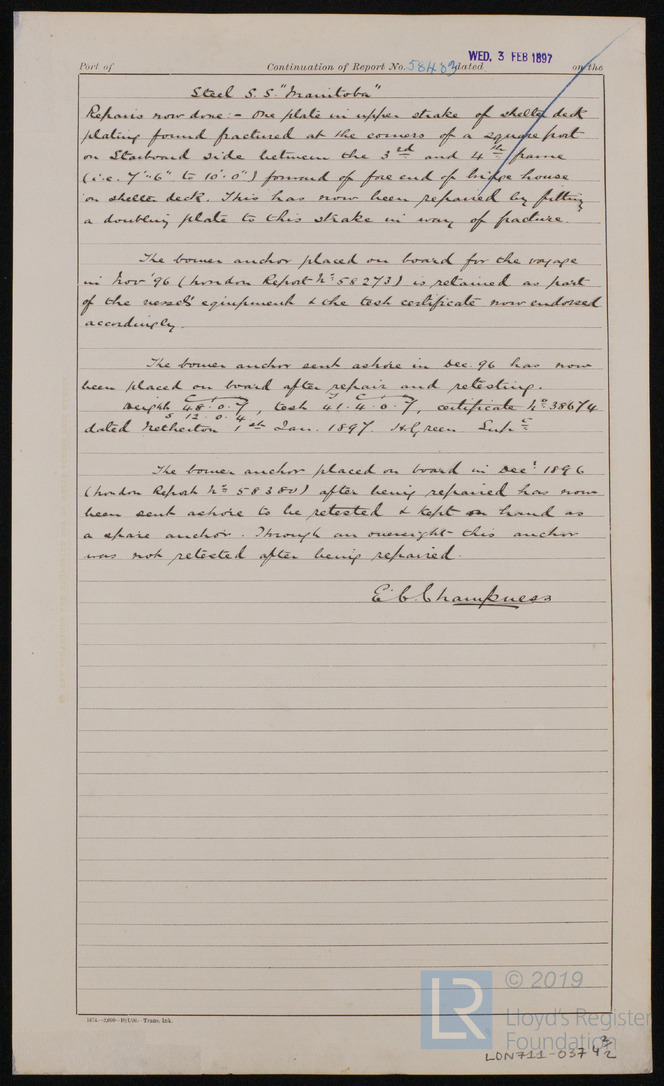 WED. 3 FEB 1897
Port of Continuation of Report No. 58483 dated on the
Steel S.S. "Manitoba"
Repairs now done:- One plate in upper strake of shelter deck
plating found fractured at the corners of a square port
on Starboard side between the 3rd and 4th frame
(i.e. 7'-6" to 10'-0") forward of fore end of bridge house
on shelter deck. This has now been repaired by fitting
a doubling plate to this strake in way of fracture.
The bower anchor placed on board for the voyage
in Nov '96 (London Report No 58273) is retained as part
of the vessel's equipment & the test certificate now endorsed
accordingly.
The bower anchor sent ashore in Dec. 96 has now
been placed on board after repair and retesting.
Weight 48.0.7, test 41.4.0.7, certificate No 38674
5 12.0.4
dated Netherton 1st Jan. 1897. H. Green Supt
The bower anchor placed on board in Decr 1896
(London Report No 58380) after being repaired has now
been sent ashore to be retested & kept on hand as
a spare anchor. Through an oversight this anchor
was not retested after being repaired.
E. C. Champness
Trans. Ink.
LR © 2019
Lloyd's Register
Foundation
LDN711-0374 2/2